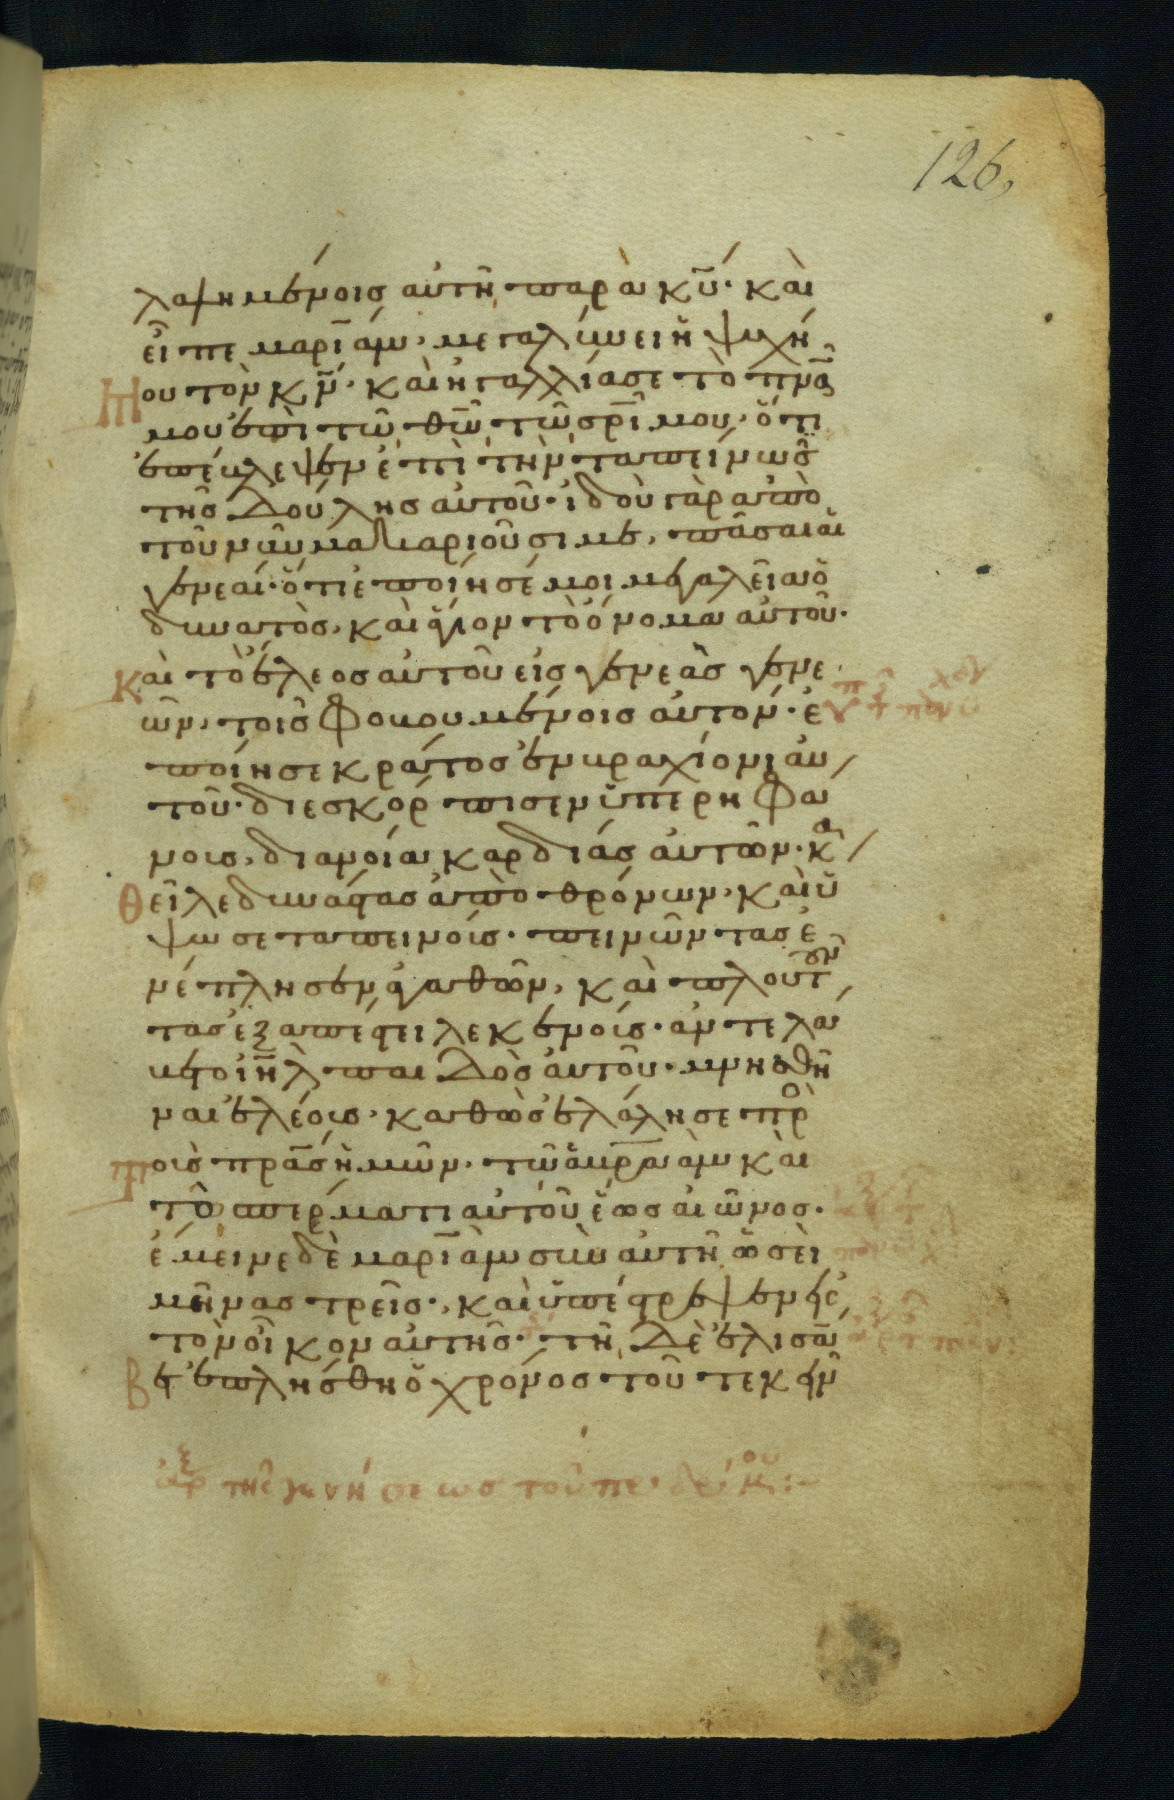 126,
λαλημένοις αὐτῆ παρὰ κῦ· καὶ
εἶπε μαριάμ· μεγαλύνει ἡ ψυχή
Μου τὸν κν̄· καὶ ἠγαλλίασε τὸ πνᾱ
μου ἐπὶ τῶ θῶ τῶ σρ̄ι μου· ὅτι
ἐπέβλεψεν ἐπὶ τὴν ταπείνωσ
τῆς δούλης αὐτοῦ· ἰδοὺ γὰρ ἀπὸ
τοῦ νῦν μακαριοῦσι με, πᾶσαι αἱ
γενεαί· ὅτι ἐποίησέ μοι μεγαλεῖα ὁ
δυνατὸς, καὶ ἅγιον τὸ ὄνομα αὐτοῦ·
Καὶ τὸ ἔλεος αὐτοῦ εἰς γενεὰς γενε
ῶν, τοῖς φοβουμένοις αὐτόν· ἐ
ποίησε κράτος ἐν βραχίονι αὐ
τοῦ· διεσκόρπισεν ὑπερηφά
νους, διανοία καρδίας αὐτῶν· κα
Θεῖλε δυνάστας ἀπὸ θρόνων, καὶ ὕ
ψωσε ταπεινούς· πεινῶντας ἐ
νέπλησεν ἀγαθῶν, καὶ πλουτοῦν
τας ἐξαπέστειλε κενούς· ἀντελά
βετο ιη̄λ παιδὸς αὐτοῦ· μνησθῆ
ναι ἐλέους· καθὼς ἐλάλησε πρὸ
Τοὺς πρᾱς ἡμῶν· τῶ ἀβραὰμ καὶ
τῶ σπέρματι αὐτοῦ ἕως αἰῶνος·
ἔμεινε δὲ μαριὰμ σὺν αὐτῆ ὡσεὶ
μῆνας τρεῖς, καὶ ὑπέστρεψεν εἰς
τὸν οἶκον αὐτῆς· τῆ δὲ ἐλισά
βετ ἐπλήσθη ὁ χρόνος τοῦ τεκεῖν
τῆς γεννήσεως τοῦ